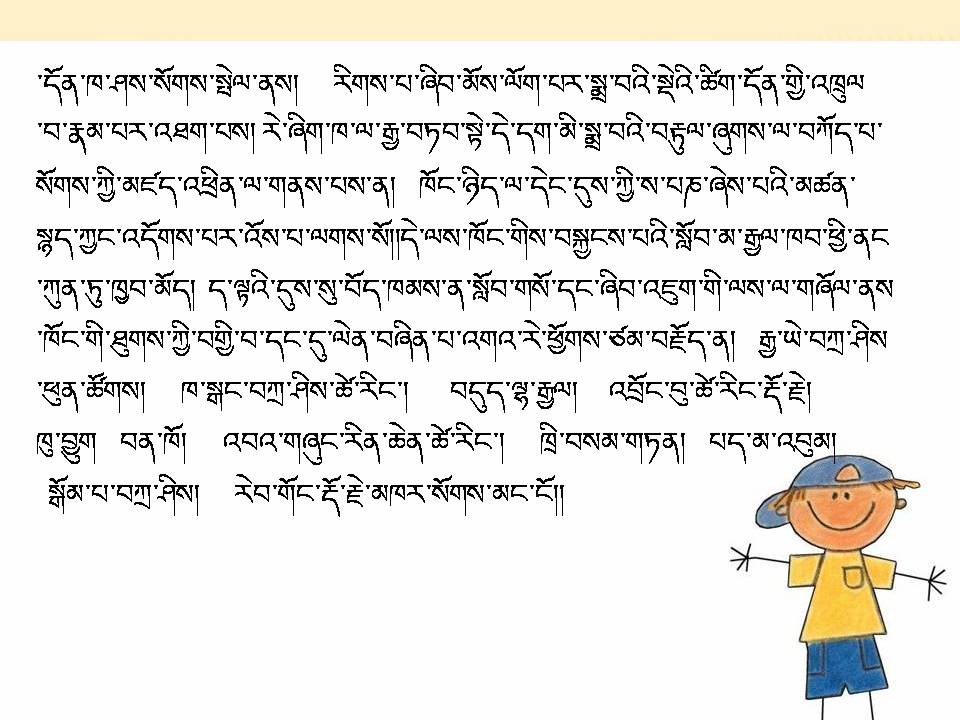 ་དོན་ཁ་ཤས་སོགས་སྤེལ་ནས།    རིགས་པ་ཞིབ་མོས་ལོག་པར་སྨྲ་བའི་སྡེའི་ཚིག་དོན་གྱི་འཁྲུལ
་བ་རྣམ་པར་འཐག་པས། རེ་ཞིག་ཁ་ལ་རྒྱ་བཏབ་སྟེ་དེ་དག་མི་སྨྲ་བའི་བརྟུལ་ཞུགས་ལ་བཀོད་པ་
སོགས་ཀྱི་མཛད་འཕྲིན་ལ་གནས་པས་ན།   ཁོང་ཉིད་ལ་དེང་དུས་ཀྱི་ས་པཎ་ཞེས་པའི་མཚན་
སྙད་ཀྱང་འདོགས་པར་འོས་པ་ལགས་སོ།།དེ་ལས་ཁོང་གིས་བསྐྱངས་པའི་སློབ་མ་རྒྱལ་ཁབ་ཕྱི་ནང
་ཀུན་ཏུ་ཁྱབ་མོད། ད་ལྟའི་དུས་སུ་བོད་ཁམས་ན་སློབ་གསོ་དང་ཞིབ་འཇུག་གི་ལས་ལ་གཞོལ་ནས
་ཁོང་གི་ཐུགས་ཀྱི་བགྱི་བ་དང་དུ་ལེན་བཞིན་པ་འགའ་རེ་ཕྱོགས་ཙམ་བརྗོད་ན།   རྒྱ་ཡེ་བཀྲ་ཤིས
་ཕུན་ཚོགས།    ཁ་སྒང་བཀྲ་ཤིས་ཚེ་རིང་།     བདུད་ལྷ་རྒྱལ།    འབྲོང་བུ་ཚེ་རིང་རྡོ་རྗེ།
ཁུ་བྱུག   བན་ཁོ།    འབའ་གཞུང་རིན་ཆེན་ཚེ་རིང་།    ཁྲི་བསམ་གཏན།   པད་མ་འབུམ།
སྒོམ་པ་བཀྲ་ཤིས།    རེབ་གོང་རྡོ་རྗེ་མཁར་སོགས་མང་ངོ།།